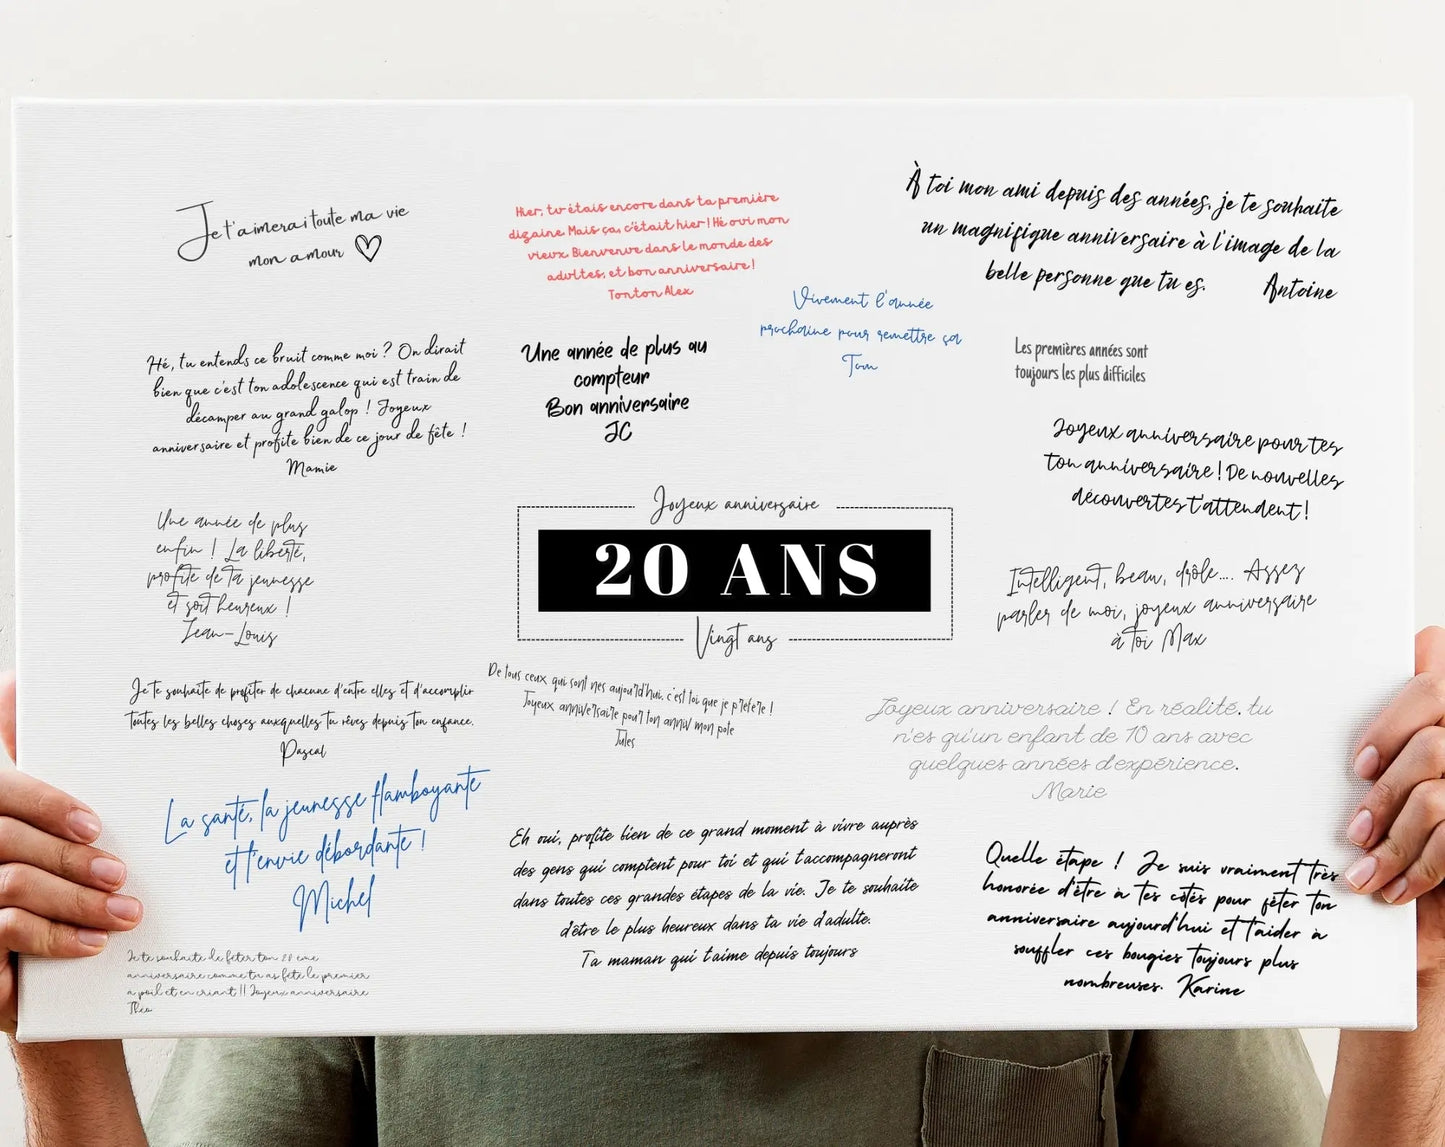 Je t'aimerai toute ma vie
mon amour
Hier, tu étais encore dans ta première
dizaine. Mais ça, c'était hier ! Hé oui mon
vieux. Bienvenue dans le monde des
adultes, et bon anniversaire !
Tonton Alex
À toi mon ami depuis des années, je te souhaite
un magnifique anniversaire à l'image de la
belle personne que tu es. Antoine
Vivement l'année
prochaine pour remettre ça
Tom
Hé, tu entends ce bruit comme moi ? On dirait
bien que c'est ton adolescence qui est train de
décamper au grand galop ! Joyeux
anniversaire et profite bien de ce jour de fête !
Mamie
Une année de plus au
compteur
Bon anniversaire
JC
Les premières années sont
toujours les plus difficiles
Joyeux anniversaire pour tes
ton anniversaire ! De nouvelles
découvertes t'attendent !
Une année de plus
enfin ! La liberté,
profite de ta jeunesse
et soit heureux !
Jean-Louis
Joyeux anniversaire
20 ANS
Vingt ans
Intelligent, beau, drôle.... Assez
parler de moi, joyeux anniversaire
à toi Max
Je te souhaite de profiter de chacune d'entre elles et d'accomplir
toutes les belles choses auxquelles tu rêves depuis ton enfance.
Pascal
De tous ceux qui sont nés aujourd'hui, c'est toi que je préfère !
Joyeux anniversaire pour ton anniv mon pote
Jules
Joyeux anniversaire ! En réalité, tu
n'es qu'un enfant de 10 ans avec
quelques années d'expérience.
Marie
La santé, la jeunesse flamboyante
et l'envie débordante !
Michel
Eh oui, profite bien de ce grand moment à vivre auprès
des gens qui comptent pour toi et qui t'accompagneront
dans toutes ces grandes étapes de la vie. Je te souhaite
d'être le plus heureux dans ta vie d'adulte.
Ta maman qui t'aime depuis toujours
Quelle étape ! Je suis vraiment très
honorée d'être à tes côtés pour fêter ton
anniversaire aujourd'hui et t'aider à
souffler ces bougies toujours plus
nombreuses. Karine
Je te souhaite de fêter ton 20 ème
anniversaire comme tu as fêté le premier
a poil et en criant !! Joyeux anniversaire
Théo